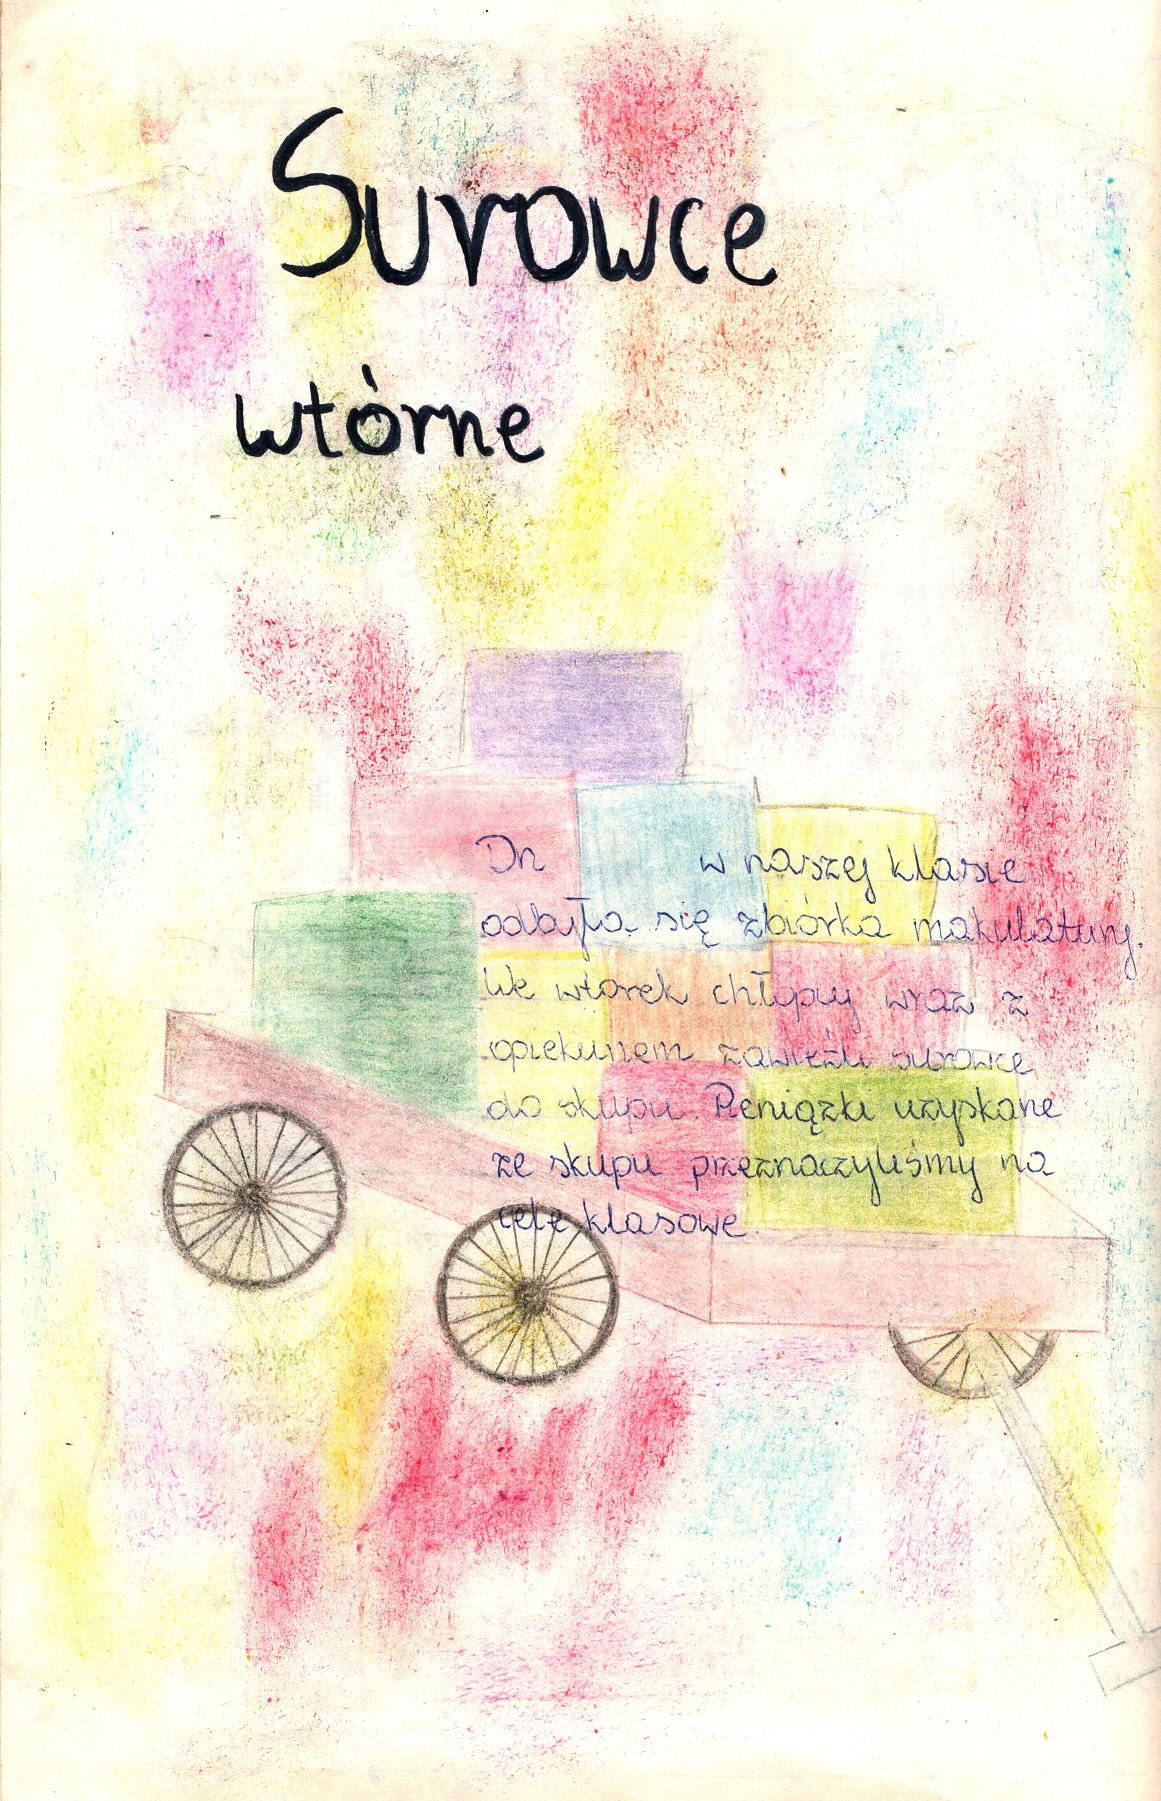 Surowce
wtórne
Dn w naszej klasie
odbyła się zbiórka makulatury.
We wtorek chłopcy wraz z
opiekunem zawieźli surowce
do skupu. Pieniążki uzyskane
ze skupu przeznaczyliśmy na
cele klasowe.